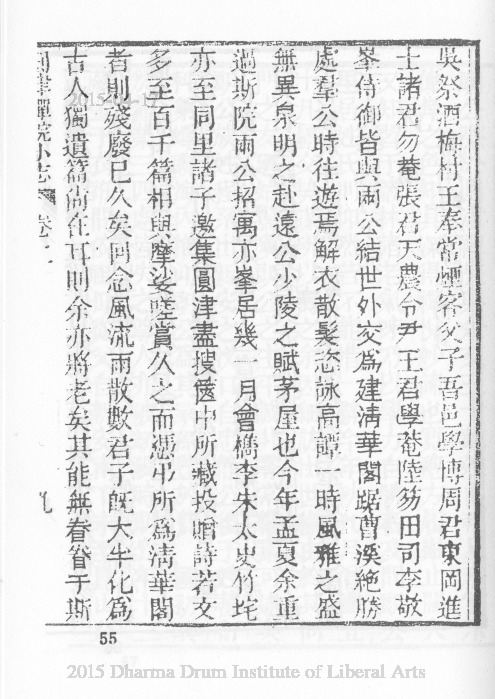 吳祭酒梅村王奉常煙客父子吾邑學博周君東岡進
士諸君勿菴張君天農令尹王君學菴陸笏田司李敬
峯侍御皆與兩公結世外交爲建清華閣踞曹溪絶勝
處羣公時往遊焉解衣散髮恣詠高譚一時風雅之盛
無異泉明之赴遠公少陵之賦茅屋也今年孟夏余重
過斯院雨公招寓亦峯居幾一月會檇李朱太史竹垞
亦至同里諸子邀集圓津盡搜篋中所藏投贈詩若文
多至百千篇相與摩娑嗟賞久之而憑弔所爲清華閣
者則殘廢已久矣囘念風流雨散數君子旣大半化爲
古人獨遺篇尙在耳則余亦將老矣其能無眷眷于斯
津禪院小志 卷 九
55
2015 Dharma Drum Institute of Liberal Arts